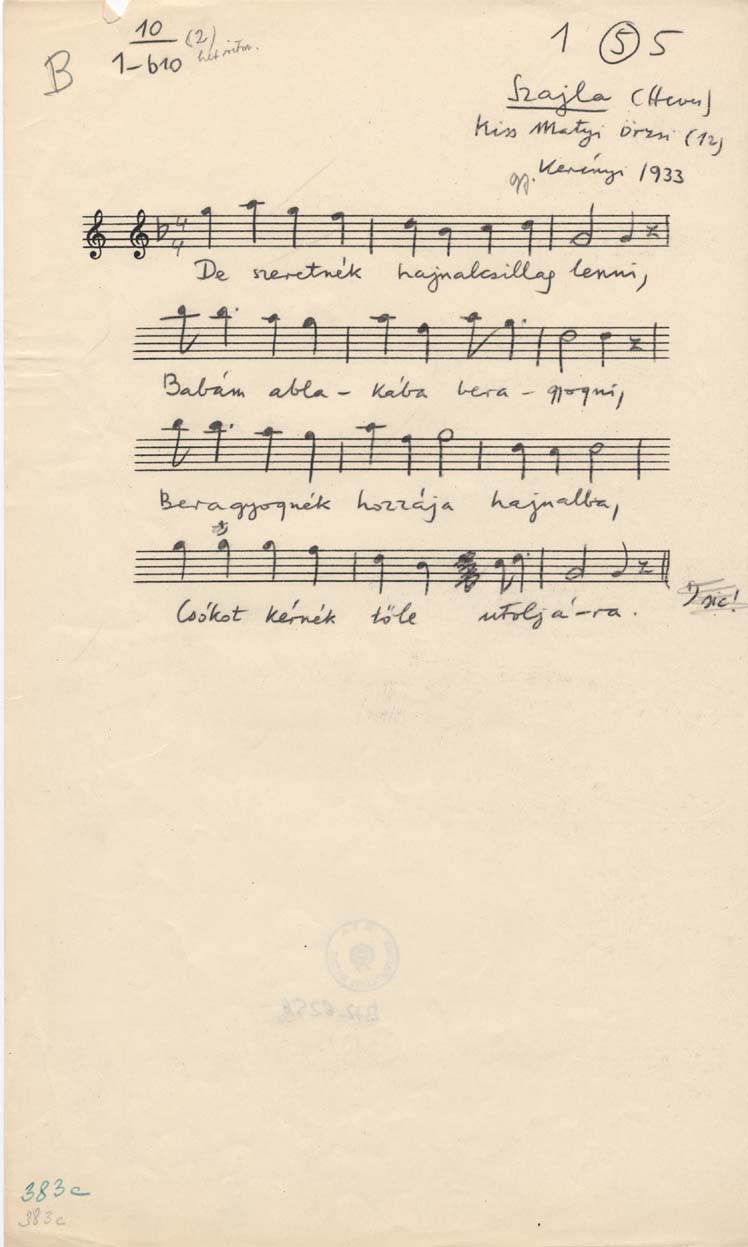 B
10 (2)
1-b10
1 5 5
Szajla (Heves)
Kiss Matyi Örzsi (12)
gy. Kerényi 1933
4
4
De szeretnék hajnalcsillag lenni,
Babám abla- kába bera- gyogni,
Beragyognék hozzája hajnalba,
Csókot kérnék tőle utoljá-ra.
sic!
383c
383c